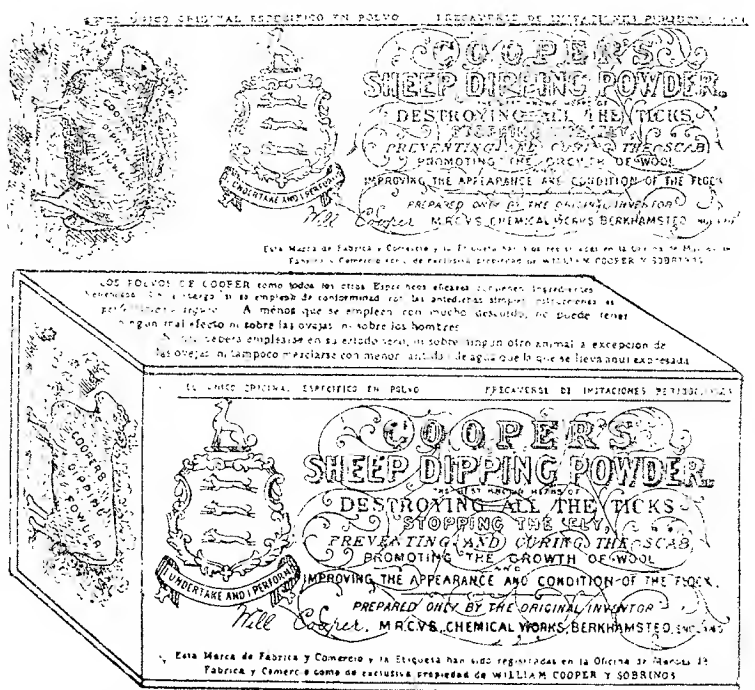 EL ÚNICO ORIGINAL ESPECIFICO EN POLVO PRECAVERSE DE IMITACIONES
COOPER'S
DIPPING
COOPER'S
SHEEP DIPPING POWDER.
THE BEST KNOWN MEANS OF
DESTROYING ALL THE TICKS
STOPPING THE FLY,
PREVENTING AND CURING THE SCAB
PROMOTING THE GROWTH OF WOOL
IMPROVING THE APPEARANCE AND CONDITION OF THE FLOCK
I UNDERTAKE AND I PERFORM
PREPARED ONLY BY THE ORIGINAL INVENTOR
Will Cooper M.R.C.V.S. CHEMICAL WORKS BERKHAMSTED
Esta Marca de Fabrica y Comercio y la Etiqueta han sido registradas en la Oficina de Marcas de
Fabrica y Comercio como de exclusiva propiedad de WILLIAM COOPER Y SOBRINOS
LOS POLVOS DE COOPER como todos los otros Especificos eficaces contienen Ingredientes
si se emplean de conformidad con las antedichas simples instrucciones es
A ménos que se empleen con mucho descuido, no puede tener
ningun mal efecto ni sobre las ovejas ni sobre los hombres
deberá emplearse en su estado seco, ni sobre ningun otro animal a excepcion de
las ovejas ni tampoco mezclarse con menor cantidad de agua que lo que se lleva aqui expresada
EL UNICO ORIGINAL ESPECIFICO EN POLVO PRECAVERSE DE IMITACIONES
COOPER'S
DIPPING
POWDER
COOPER'S
SHEEP DIPPING POWDER.
THE BEST KNOWN MEANS OF
DESTROYING ALL THE TICKS
STOPPING THE FLY,
PREVENTING AND CURING THE SCAB,
PROMOTING THE GROWTH OF WOOL
AND
IMPROVING THE APPEARANCE AND CONDITION OF THE FLOCK.
I UNDERTAKE AND I PERFORM
PREPARED ONLY BY THE ORIGINAL INVENTOR
Will Cooper. M.R.C.V.S., CHEMICAL WORKS, BERKHAMSTED, ENGLAND
Esta Marca de Fabrica y Comercio y la Etiqueta han sido registradas en la Oficina de Marcas de
Fabrica y Comercio como de exclusiva propiedad de WILLIAM COOPER Y SOBRINOS